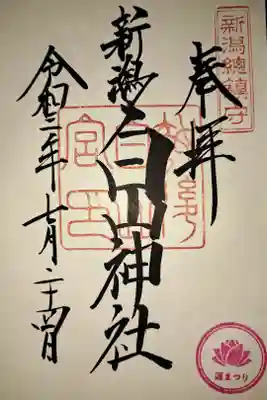 新潟總鎮守
奉拝
新潟白山神社
令和三年七月二十四日
蓮まつり